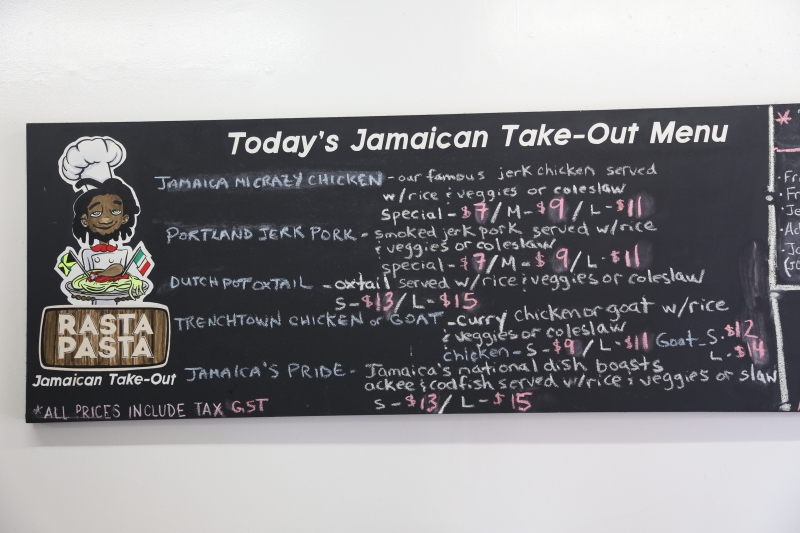 Today's Jamaican Take-Out Menu
JAMAICA MI CRAZY CHICKEN - our famous jerk chicken served
w/rice & veggies or coleslaw
Special - $7/ M - $9 / L - $11
PORTLAND JERK PORK - smoked jerk pork served w/rice
& veggies or coleslaw
special - $7/ M - $9/ L - $11
DUTCH POT OXTAIL - oxtail served w/rice & veggies or coleslaw
S - $13/ L - $15
TRENCHTOWN CHICKEN or GOAT - curry chicken or goat w/rice
& veggies or coleslaw
chicken - S - $9 / L - $11 Goat - S - $12
L - $14
JAMAICA'S PRIDE - Jamaica's national dish boasts
ackee & codfish served w/rice & veggies or slaw
S - $13/ L - $15
RASTA
PASTA
Jamaican Take-Out
*ALL PRICES INCLUDE TAX GST